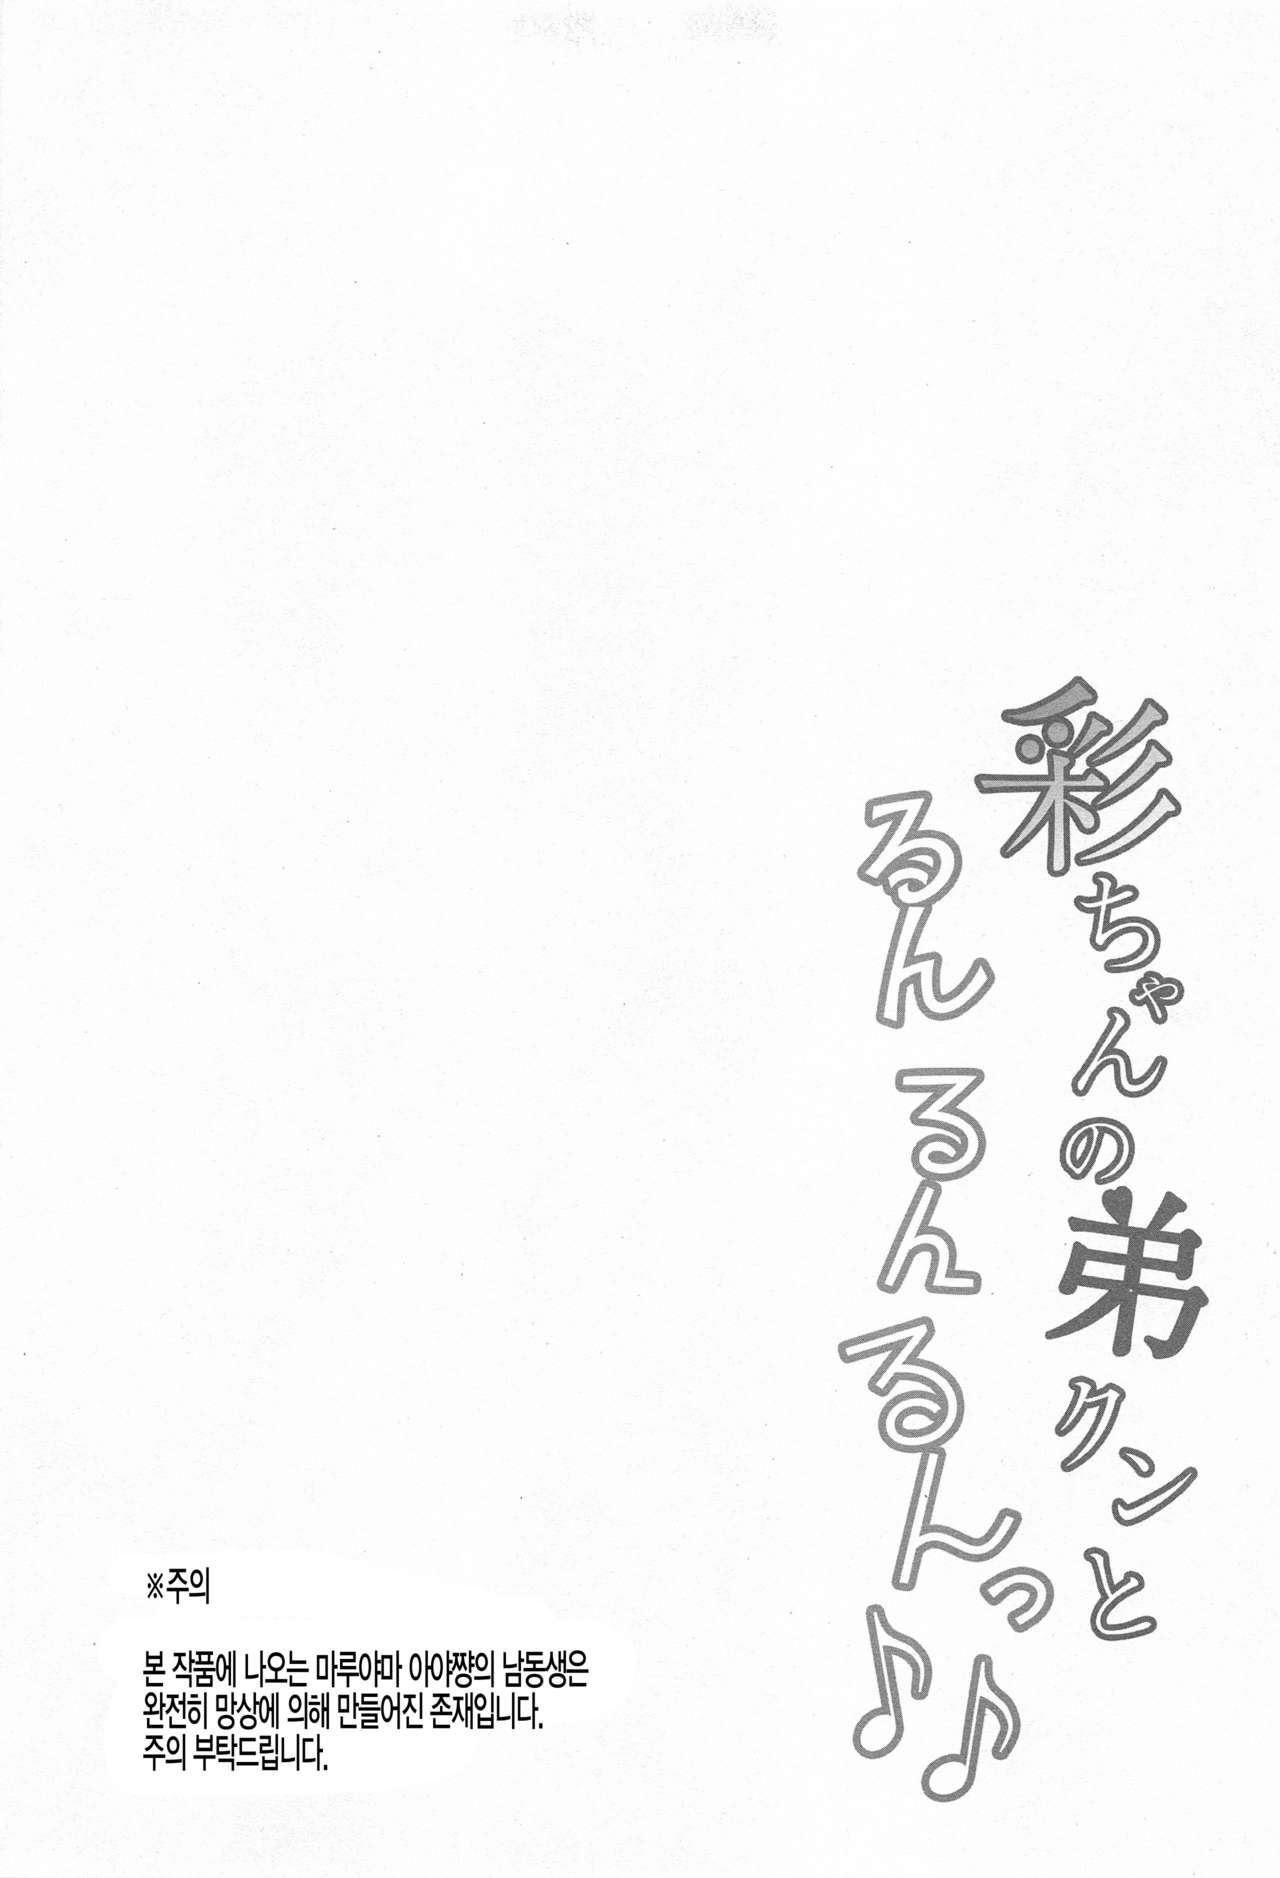 彩ちゃんの弟クンと
るんるんるんっ♪♪
※주의
본 작품에 나오는 마루야마 아야쨩의 남동생은
완전히 망상에 의해 만들어진 존재입니다.
주의 부탁드립니다.